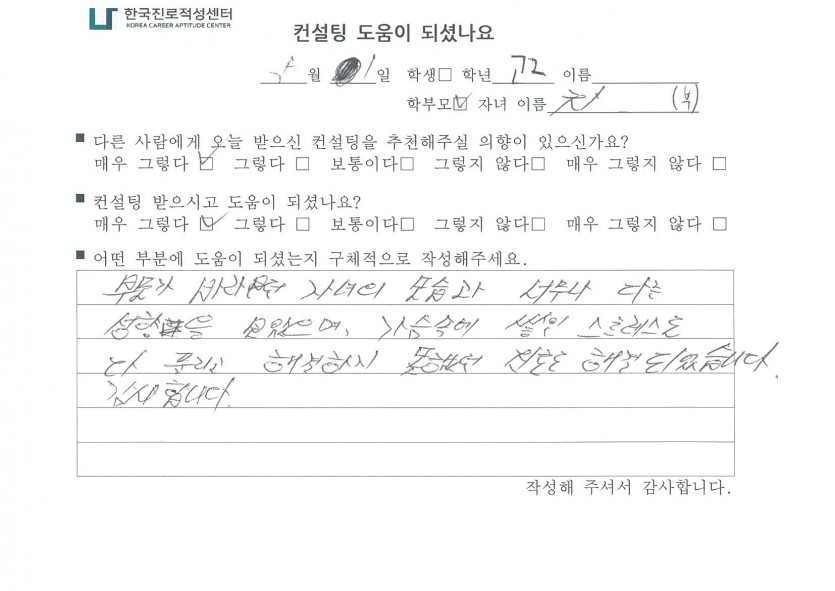 한국진로적성센터
KOREA CAREER APTITUDE CENTER
컨설팅 도움이 되셨나요
월 1일 학생□ 학년 고2 이름
학부모☑ 자녀 이름 (부)
■ 다른 사람에게 오늘 받으신 컨설팅을 추천해주실 의향이 있으신가요?
매우 그렇다 ☑ 그렇다 □ 보통이다□ 그렇지 않다□ 매우 그렇지 않다 □
■ 컨설팅 받으시고 도움이 되셨나요?
매우 그렇다 ☑ 그렇다 □ 보통이다□ 그렇지 않다□ 매우 그렇지 않다 □
■ 어떤 부분에 도움이 되셨는지 구체적으로 작성해주세요.
부모가 바라던 자녀의 모습과 너무나 다른
성향을 보았으며, 가슴속에 쌓인 스트레스도
다 풀리고 해결하지 못했던 진로도 해결되었습니다.
감사합니다.
작성해 주셔서 감사합니다.